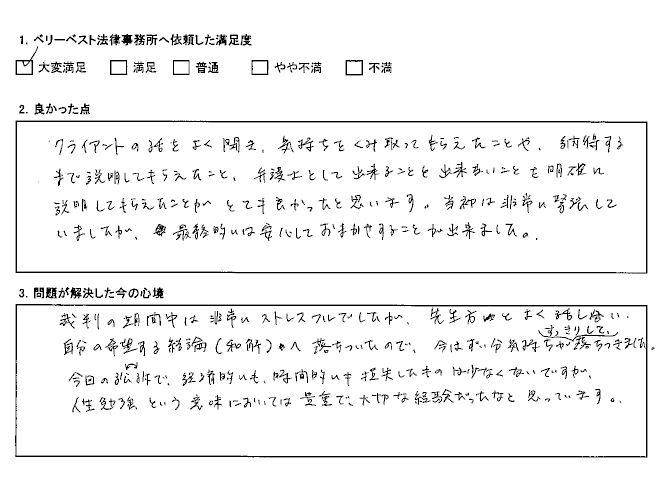 1. ベリーベスト法律事務所へ依頼した満足度
大変満足 満足 普通 やや不満 不満
2. 良かった点
クライアントの話をよく聞き、気持ちをくみ取ってもらえたことや、納得する
まで説明してもらえたこと、弁護士として出来ることと出来ないことを明確に
説明してもらえたことが とても良かったと思います。当初は非常に緊張して
いましたが、最終的には安心しておまかせすることが出来ました。
3. 問題が解決した今の心境
裁判の期間中は非常にストレスフルでしたが、先生方とよく話し合い、
自分の希望する結論(和解)へ落ちついたので、今はずい分気持ちがすっきりして、落ちつきました。
今回の訴訟で、経済的にも、時間的にも損失したものは少なくないですが、
人生勉強という意味においては貴重で、大切な経験だったなと思っています。